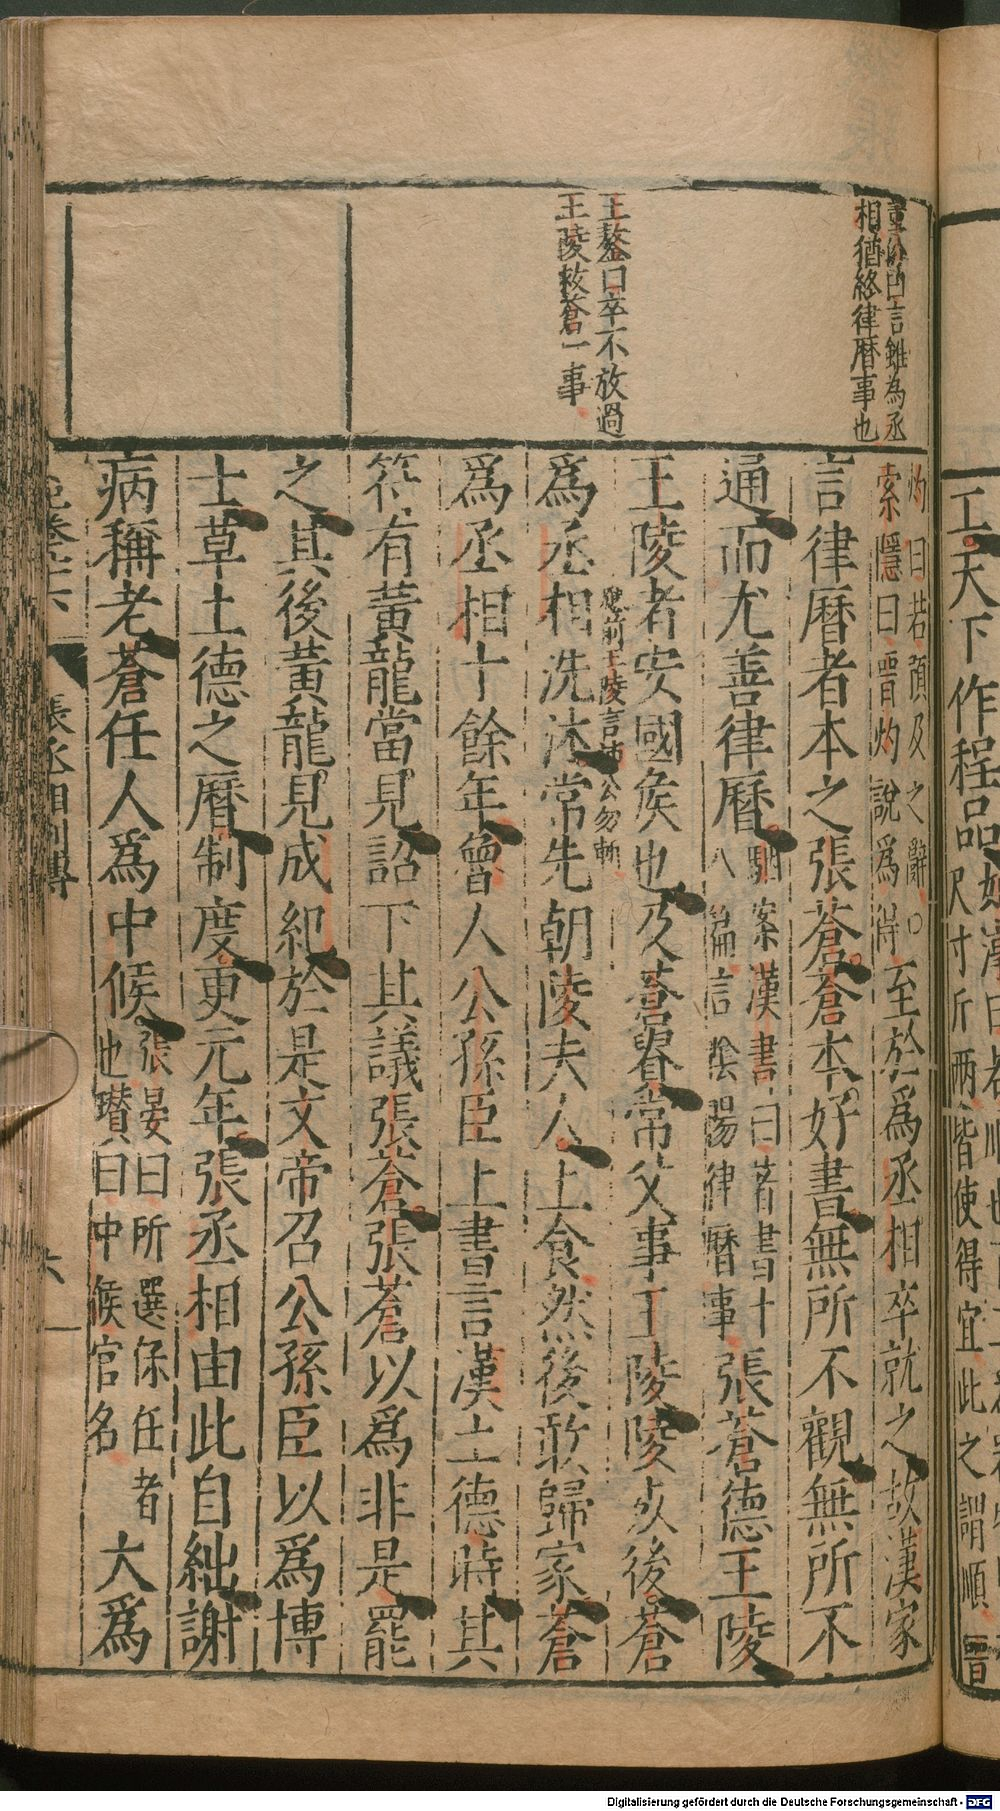 重份曰言雖為丞
相猶終律曆事也
王鏊曰卒不放過
王陵救蒼一事
灼曰若預及之辭○
索隱曰晋灼說為得
至於為丞相卒就之故漢家
言律曆者本之張蒼蒼本好書無所不觀無所不
通而尤善律曆
駰案漢書曰著書十
八篇言陰陽律曆事
張蒼德王陵
王陵者安國侯也及蒼貴常父事王陵陵死後蒼
應前王陵言沛公勿斬
爲丞相洗沐常先朝陵夫人上食然後敢歸家蒼
爲丞相十餘年魯人公孫臣上書言漢土德時其
符有黃龍當見詔下其議張蒼張蒼以爲非是罷
之其後黃龍見成紀於是文帝召公孫臣以爲博
士草土德之曆制度更元年張丞相由此自絀謝
病稱老蒼任人爲中候
張晏曰所選保任者
也瓚曰中候官名
大爲
卷六 張丞相列傳 六
工天下作程品
如淳曰若順也百工爲器物皆
有尺寸斤兩皆使得宜此之謂順
晋
Digitalisierung gefördert durch die Deutsche Forschungsgemeinschaft - DFG